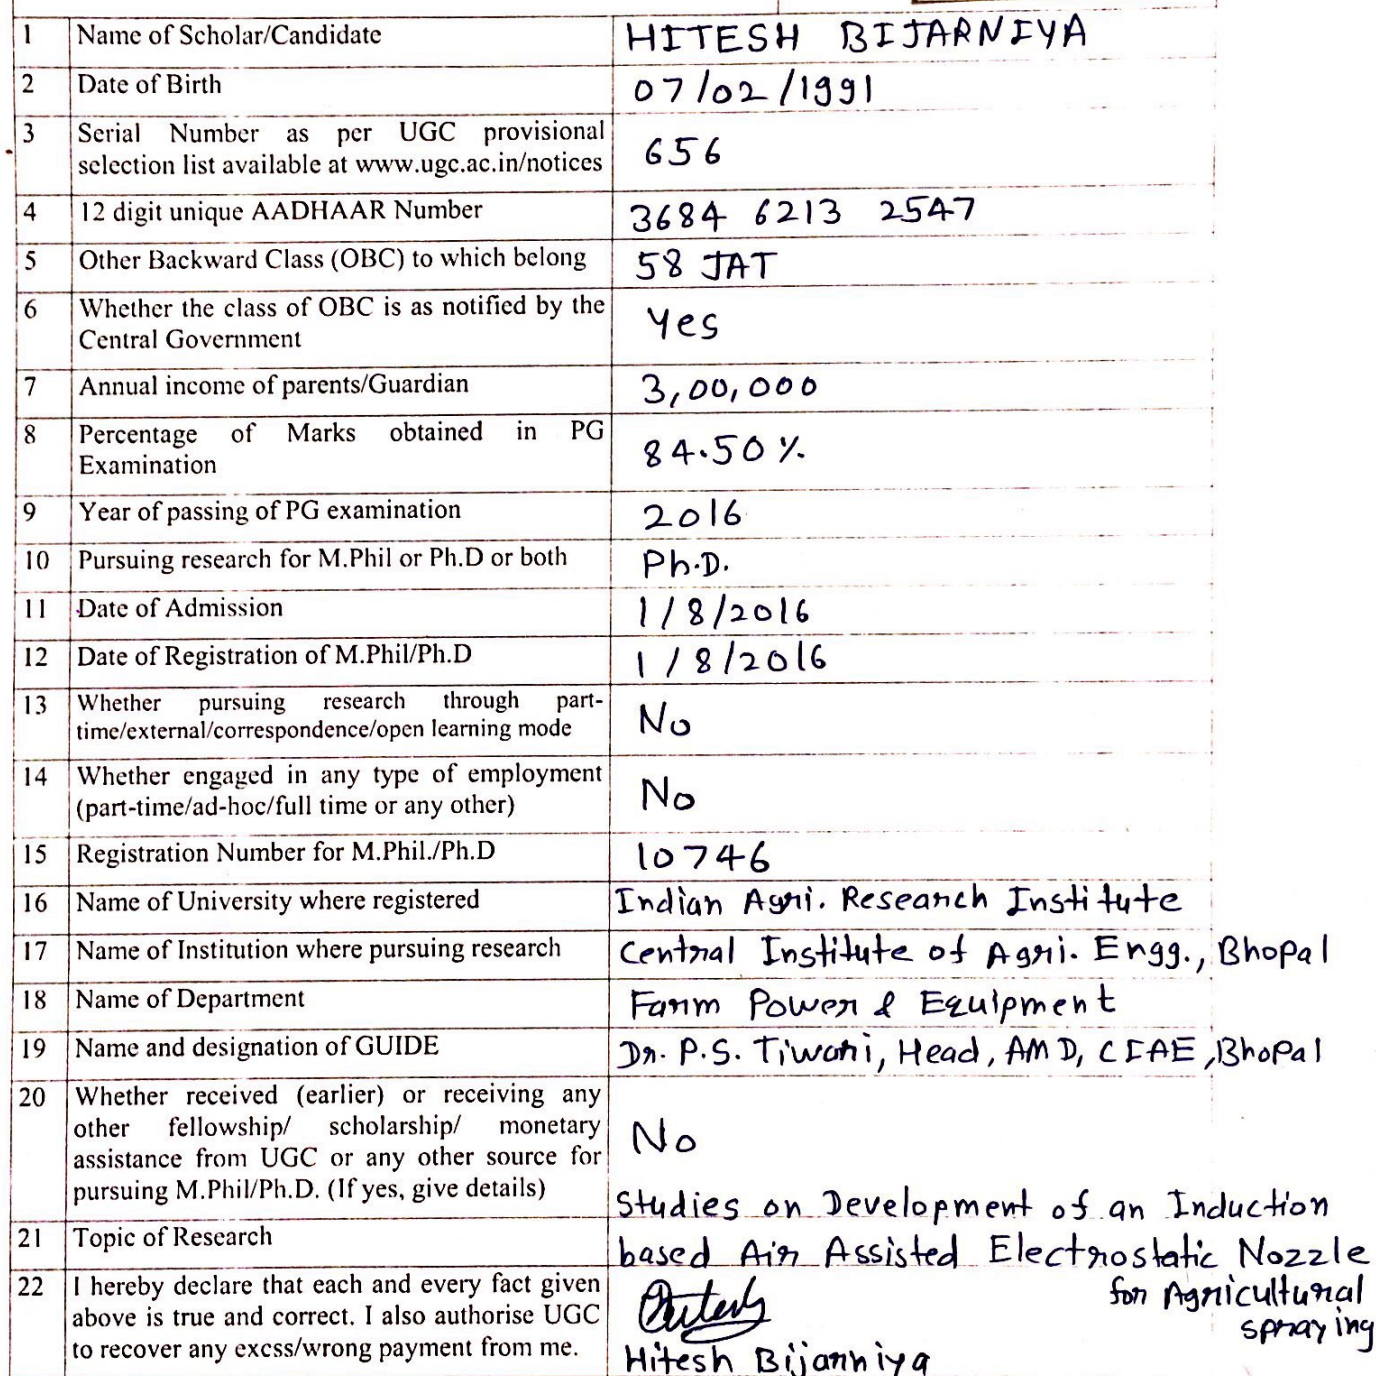 1 Name of Scholar/Candidate HITESH BIJARNIYA
2 Date of Birth 07/02/1991
3 Serial Number as per UGC provisional
selection list available at www.ugc.ac.in/notices 656
4 12 digit unique AADHAAR Number 3684 6213 2547
5 Other Backward Class (OBC) to which belong 58 JAT
6 Whether the class of OBC is as notified by the
Central Government Yes
7 Annual income of parents/Guardian 3,00,000
8 Percentage of Marks obtained in PG
Examination 84.50 %
9 Year of passing of PG examination 2016
10 Pursuing research for M.Phil or Ph.D or both Ph.D.
11 Date of Admission 1/8/2016
12 Date of Registration of M.Phil/Ph.D 1/8/2016
13 Whether pursuing research through part-
time/external/correspondence/open learning mode No
14 Whether engaged in any type of employment
(part-time/ad-hoc/full time or any other) No
15 Registration Number for M.Phil./Ph.D 10746
16 Name of University where registered Indian Agri. Research Institute
17 Name of Institution where pursuing research Central Institute of Agri. Engg., Bhopal
18 Name of Department Farm Power & Equipment
19 Name and designation of GUIDE Dr. P.S. Tiwari, Head, AMD, CIAE, Bhopal
20 Whether received (earlier) or receiving any
other fellowship/ scholarship/ monetary
assistance from UGC or any other source for
pursuing M.Phil/Ph.D. (If yes, give details) No
21 Topic of Research Studies on Development of an Induction
based Air Assisted Electrostatic Nozzle
for Agricultural
spraying
22 I hereby declare that each and every fact given
above is true and correct. I also authorise UGC
to recover any excss/wrong payment from me.
Hitesh Bijarniya